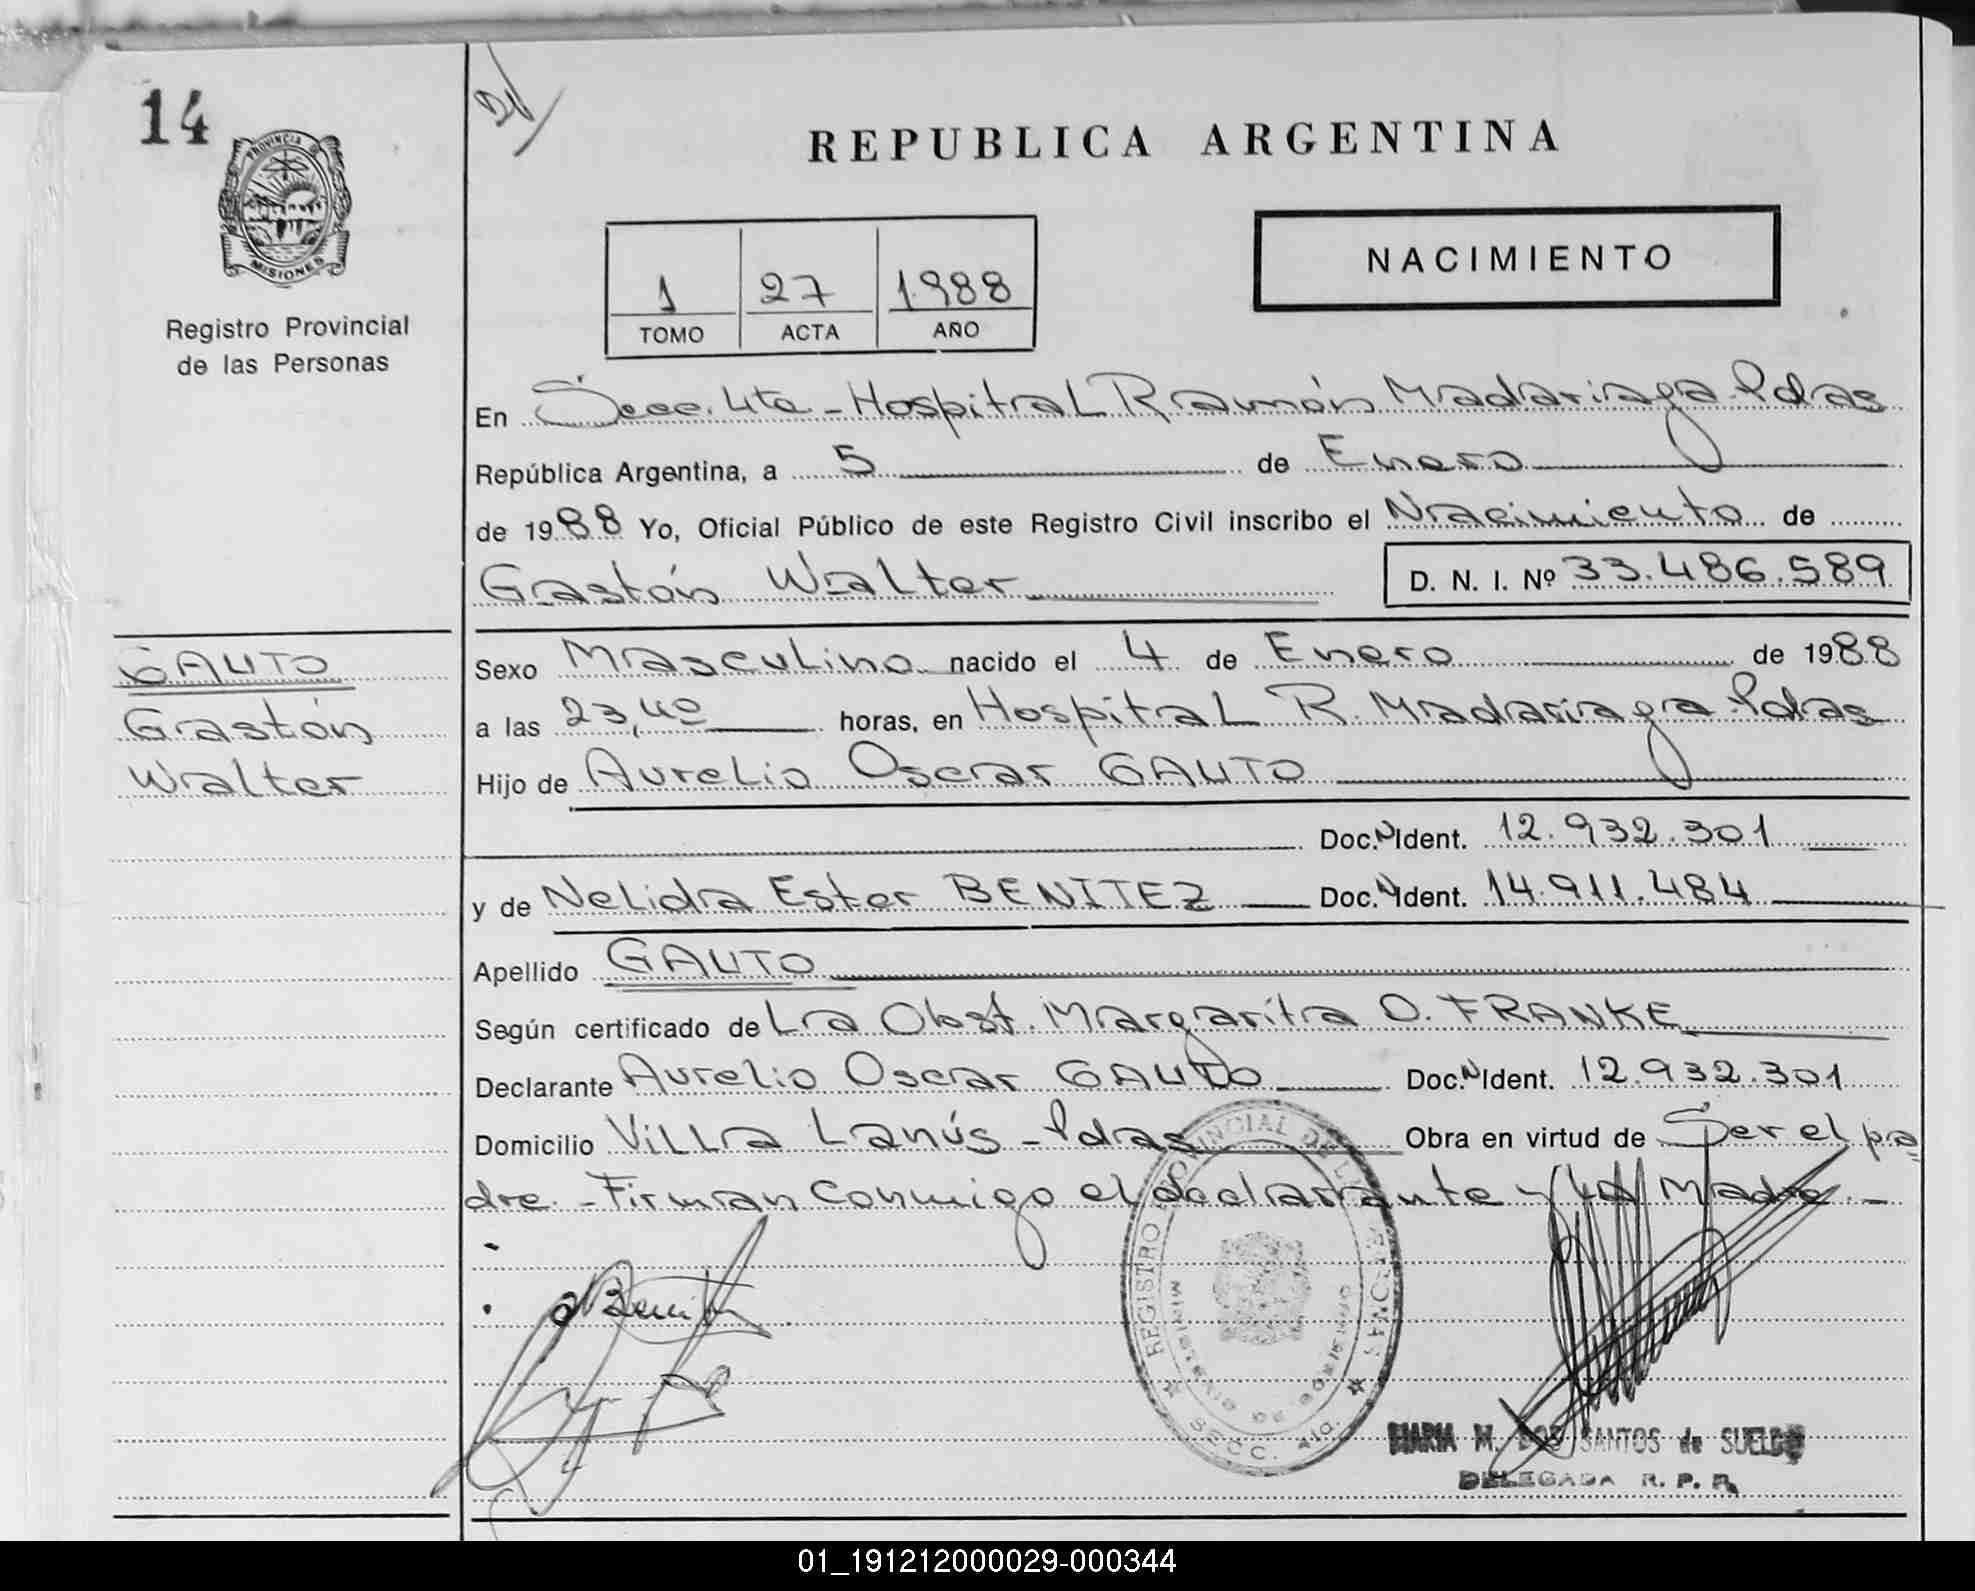 14
PROVINCIA DE
MISIONES
Registro Provincial
de las Personas
REPUBLICA ARGENTINA
1 27 1988
TOMO ACTA AÑO
NACIMIENTO
En Secc. 4ta - Hospital Ramón Madariaga Pdas
República Argentina, a 5 de Enero
de 1988 Yo, Oficial Público de este Registro Civil inscribo el Nacimiento de
Gastón Walter D. N. I. Nº 33.486.589
GAUTO
Gastón
Walter
Sexo Masculino nacido el 4 de Enero de 1988
a las 23,40 horas, en Hospital R. Madariaga Pdas
Hijo de Aurelio Oscar GAUTO
Doc. N Ident. 12.932.301
y de Nelida Ester BENITEZ Doc. N Ident. 14.911.484
Apellido GAUTO
Según certificado de La Obst. Margarita O. FRANKE
Declarante Aurelio Oscar GAUTO Doc. N Ident. 12.932.301
Domicilio Villa Lanús - Pdas Obra en virtud de Ser el pa
dre. - Firman conmigo el declarante y la Madre. -
Benitez
REGISTRO PROVINCIAL DE LAS PERSONAS
MINISTERIO DE GOBIERNO
SECC. 4ta.
MARIA M. DOS SANTOS de SUELDO
DELEGADA R. P. P.
01_191212000029-000344